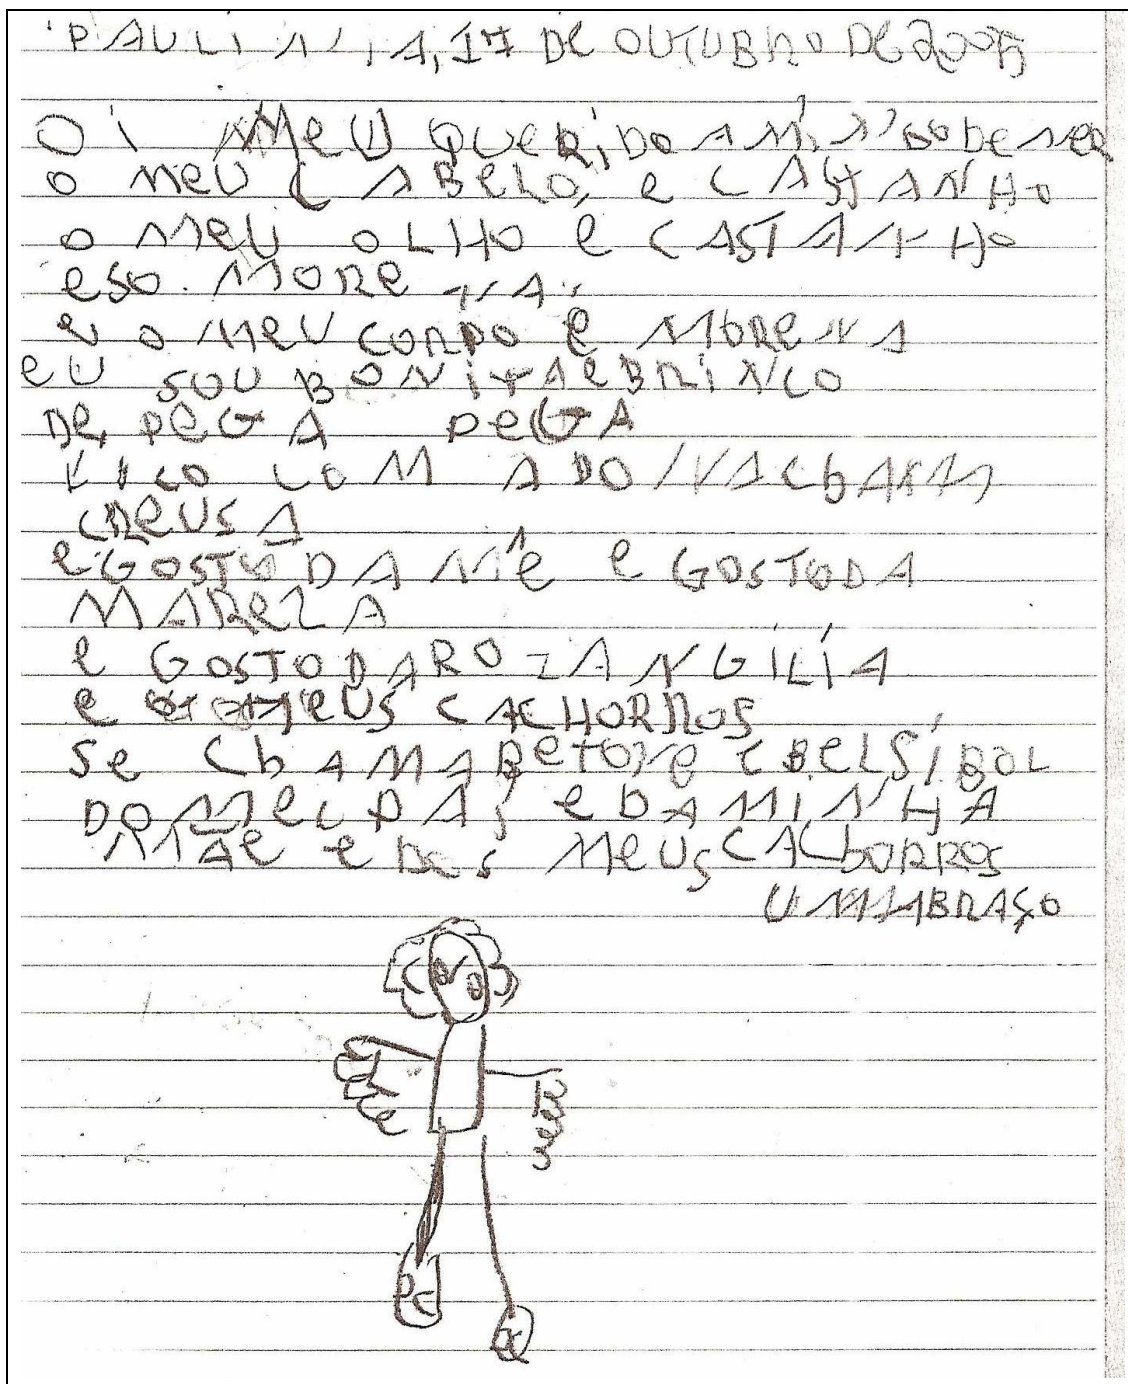 PAULINIA, 17 DE OUTUBRO DE 2005
OI MEU QUERIDO
O MEU CABELO, E CASTANHO
O MEU OLHO E CASTANHO
ESO. MORE NA.
E O MEU CORPO E MORENA
EU SOU BONITA E BRINCO
DE PEGA PEGA
FICO COM A DONA
CREUSA
E GOSTO DA ME E GOSTO DA
MAREZA
E GOSTO DA ROZANGILÍA
E MEUS CACHORROS
SE CHAMA E
DO MEU PAI E DA MINHA
MÃE E DOS MEUS CACHORROS
UM ABRAÇO